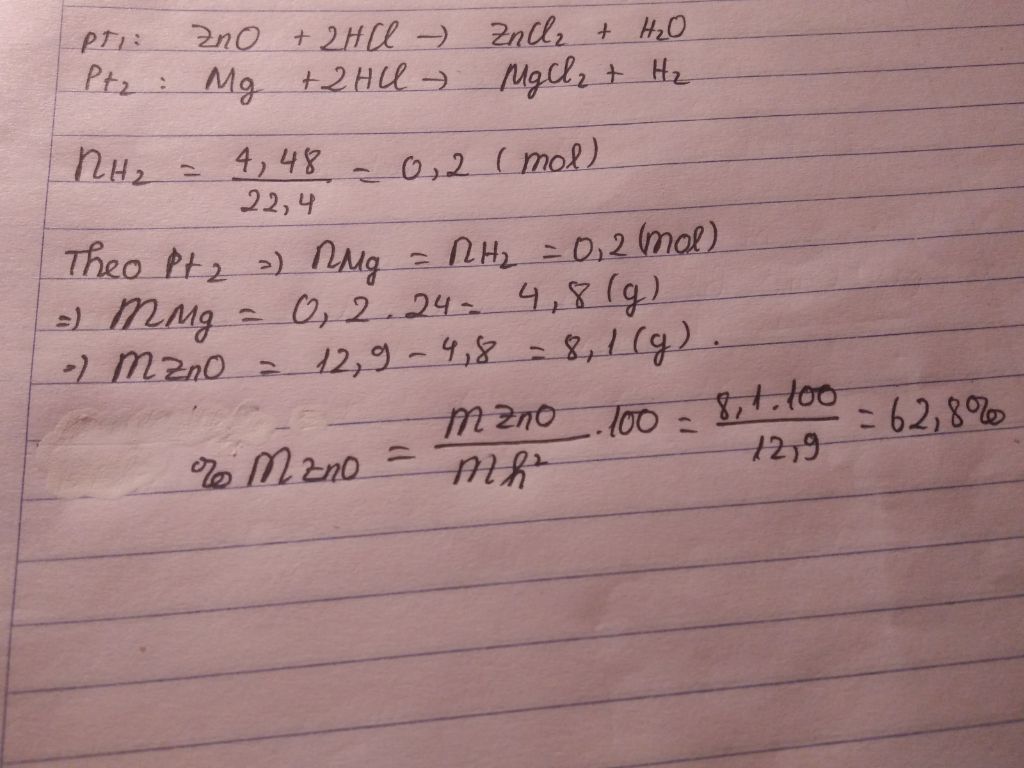 pt1: ZnO + 2HCl → ZnCl2 + H2O
Pt2: Mg + 2HCl → MgCl2 + H2
nH2 = 4,48/22,4 = 0,2 (mol)
Theo Pt2 => nMg = nH2 = 0,2 (mol)
=> mMg = 0,2 . 24 = 4,8 (g)
=> mZnO = 12,9 - 4,8 = 8,1 (g).
% mZnO = mZnO/mh² .100 = 8,1.100/12,9 = 62,8%